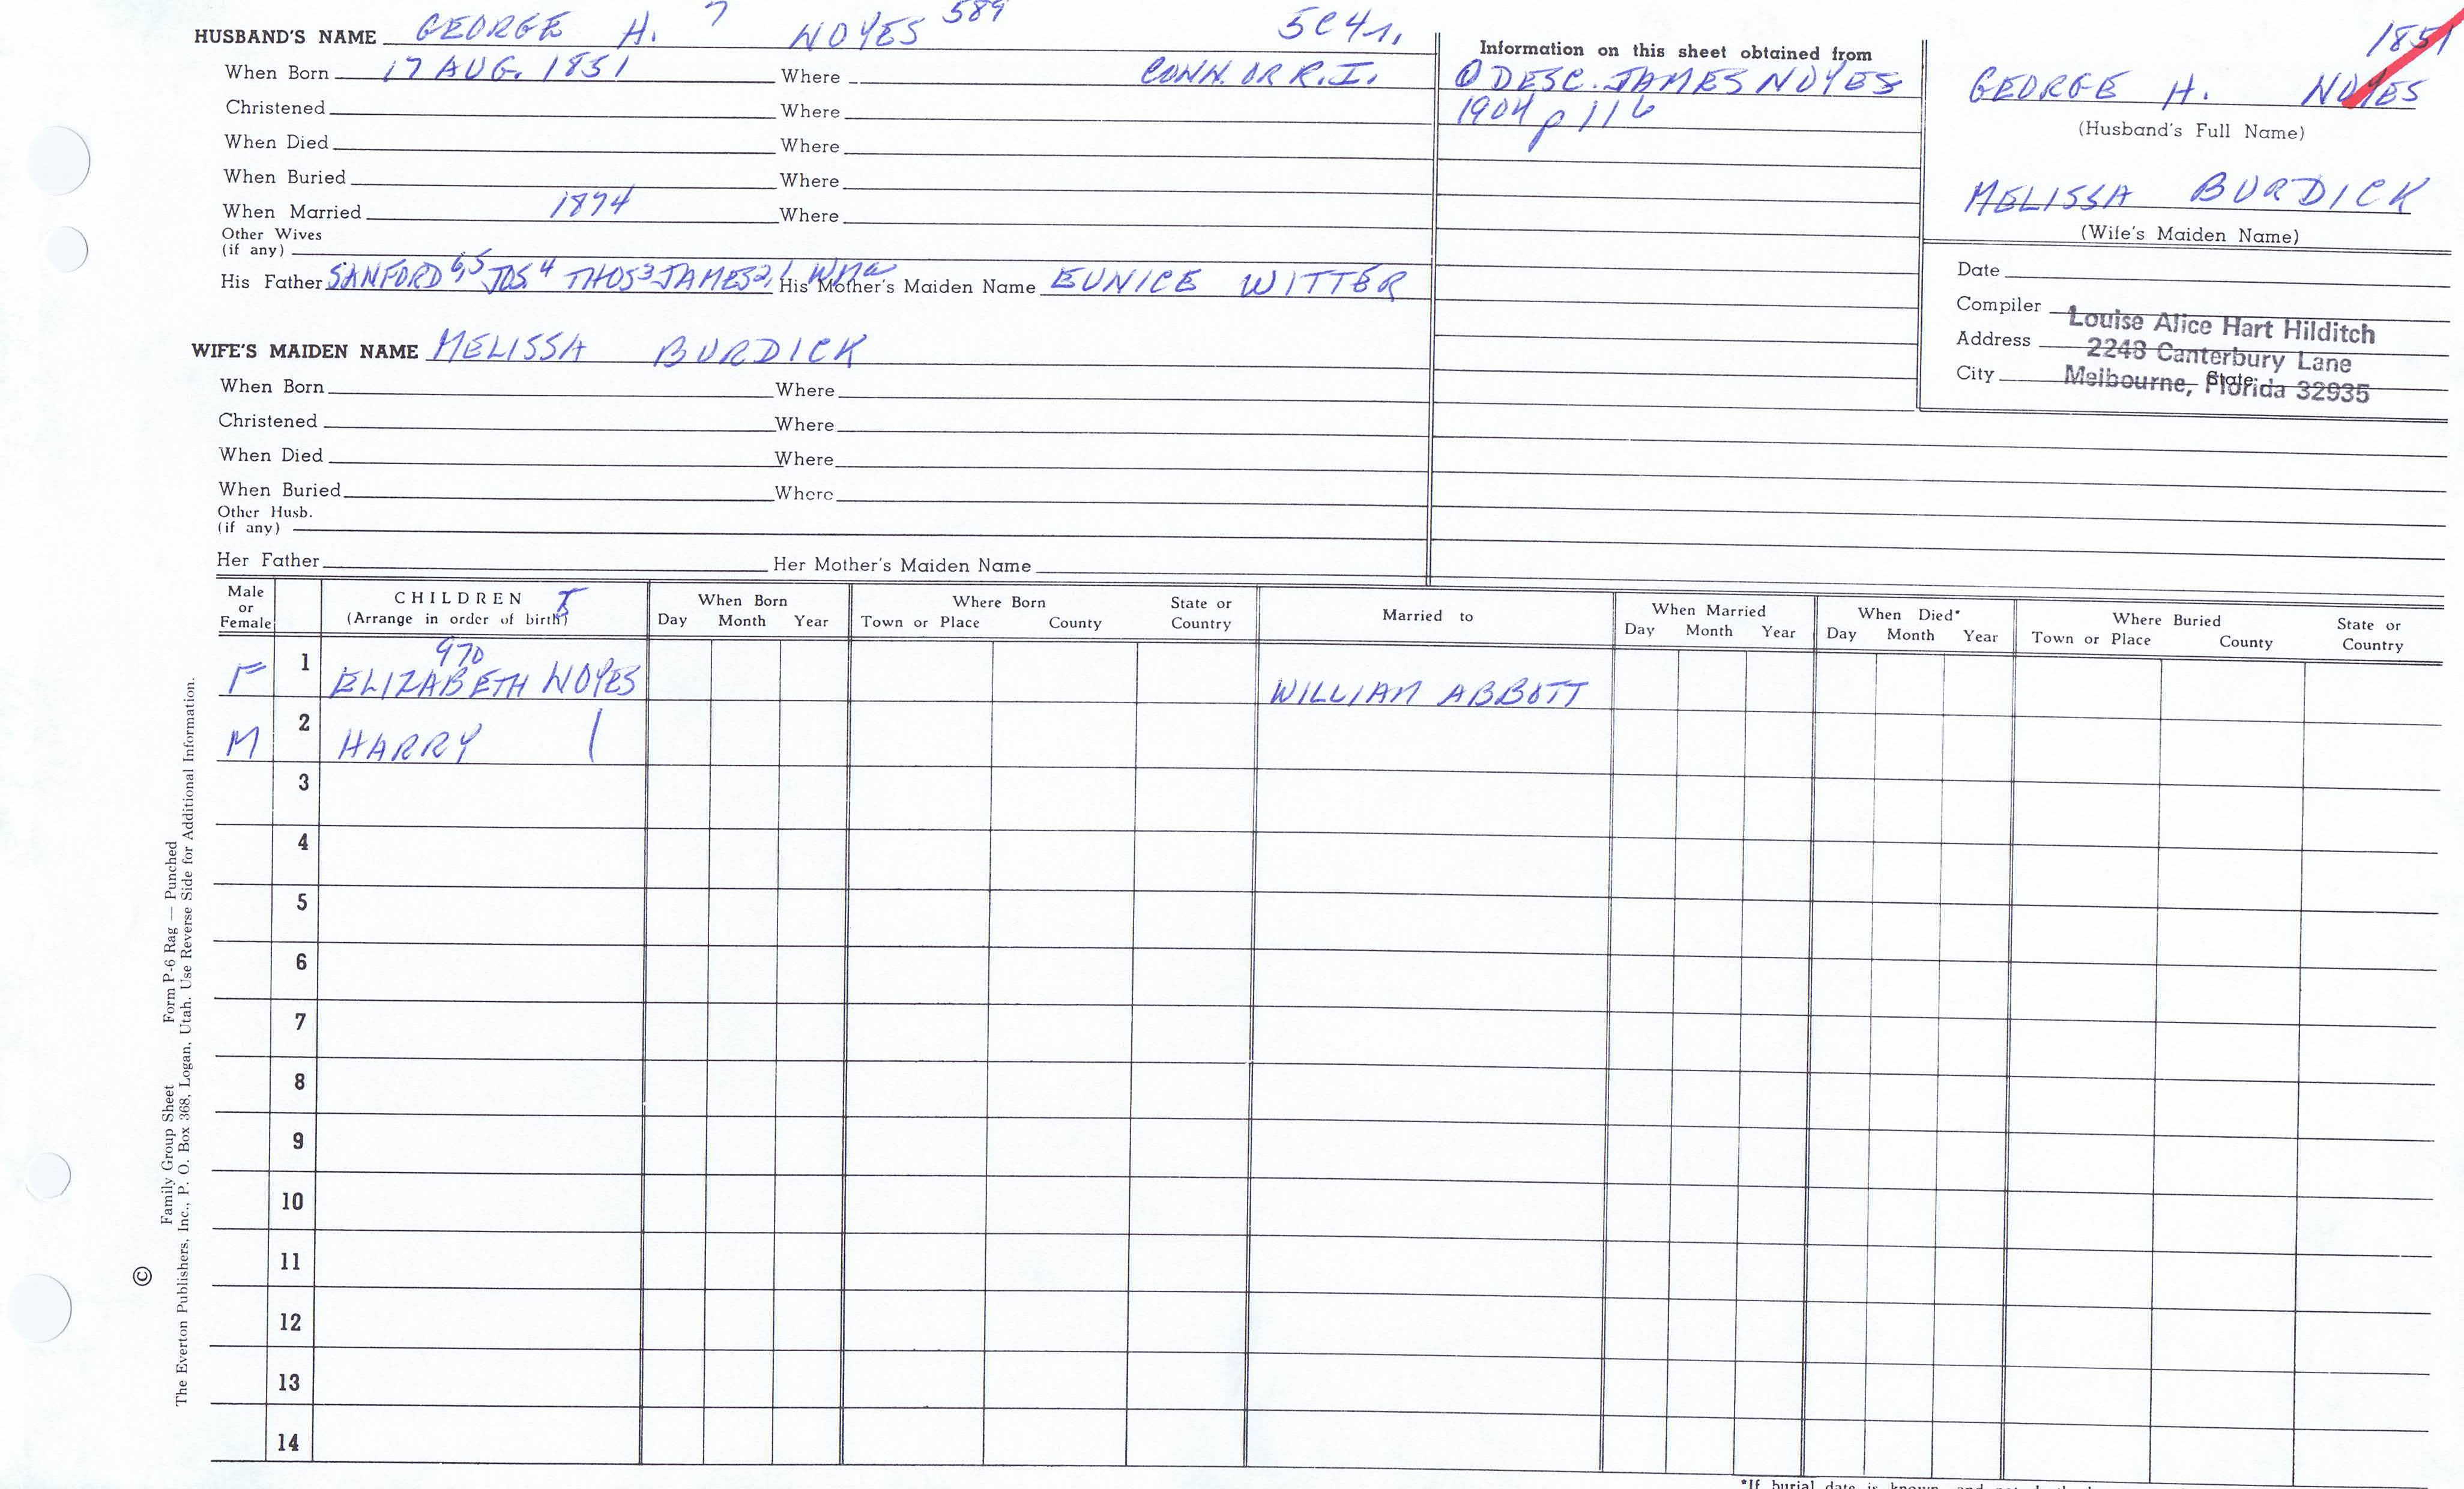 HUSBAND'S NAME GEORGE H. 7 NOYES 589 5C4r.
When Born 17 AUG. 1851 Where CONN. OR R.I.
Christened Where
When Died Where
When Buried Where
When Married 1874 Where
Other Wives
(if any)
His Father SANFORD 6,5 JOS 4 THOS 3 JAMES 2,1 Wm a His Mother's Maiden Name EUNICE WITTER
Information on this sheet obtained from
① DESC. JAMES NOYES
1904 p 116
1851
GEORGE H. NOYES
(Husband's Full Name)
MELISSA BURDICK
(Wife's Maiden Name)
Date
Compiler Louise Alice Hart Hilditch
Address 2248 Canterbury Lane
City Melbourne, Florida 32935 State
WIFE'S MAIDEN NAME MELISSA BURDICK
When Born Where
Christened Where
When Died Where
When Buried Where
Other Husb.
(if any)
Her Father Her Mother's Maiden Name
Male or Female CHILDREN (Arrange in order of birth) When Born Day Month Year Where Born Town or Place County State or Country Married to When Married Day Month Year When Died* Day Month Year Where Buried Town or Place County State or Country
970
F 1 ELIZABETH NOYES WILLIAM ABBOTT
M 2 HARRY
3
4
5
6
7
8
9
10
11
12
13
14
Family Group Sheet Form P-6 Rag — Punched
© The Everton Publishers, Inc., P. O. Box 368, Logan, Utah. Use Reverse Side for Additional Information.
*If burial date is known